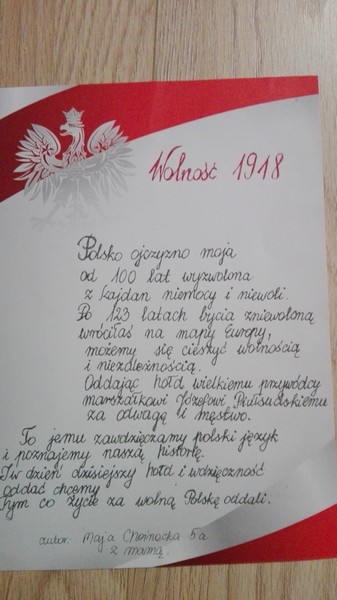 Wolność 1918
Polsko ojczyzno moja
od 100 lat wyzwolona
z kajdan niemocy i niewoli.
Po 123 latach bycia zniewoloną
wróciłaś na mapy Europy,
możemy się cieszyć wolnością
i niezależnością.
Oddając hołd wielkiemu przywódcy
marszałkowi Józefowi Piłsudskiemu
za odwagę i męstwo.
To jemu zawdzięczamy polski język
i poznajemy naszą historię.
I w dzień dzisiejszy hołd i wdzięczność
oddać chcemy
tym co życie za wolną Polskę oddali.
autor: Maja Choinacka 5a
z mamą.